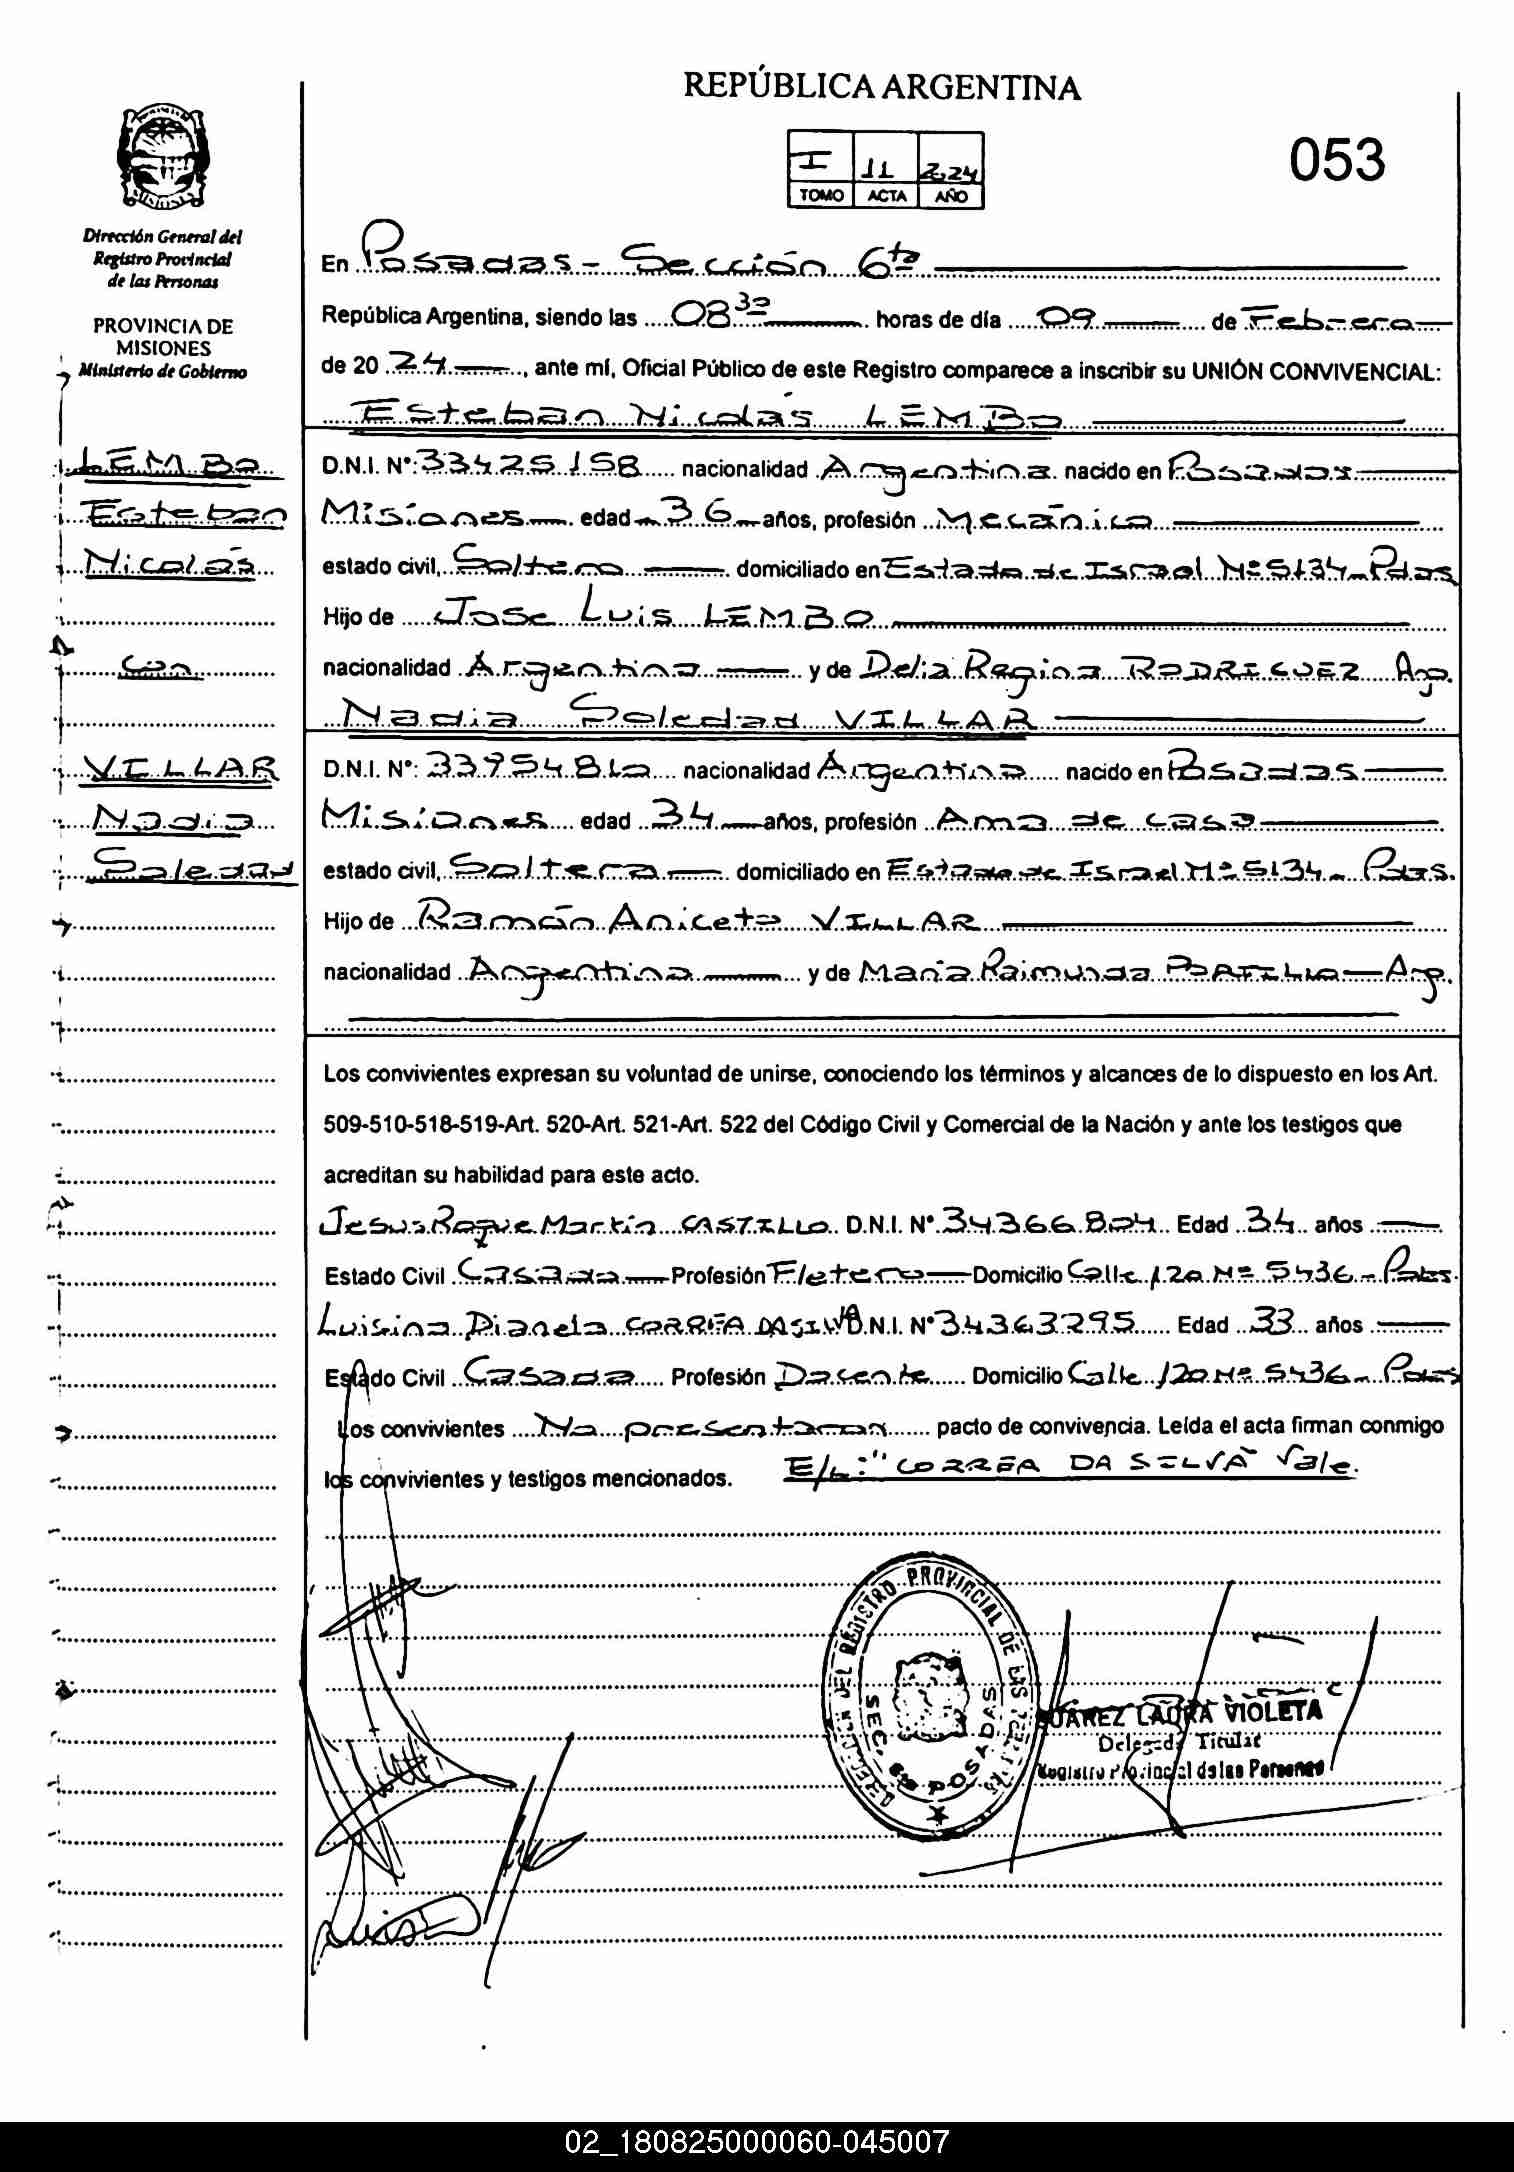 REPÚBLICA ARGENTINA
I 11 2.24
TOMO ACTA AÑO
053
MISIONES
Dirección General del
Registro Provincial
de las Personas
PROVINCIA DE
MISIONES
Ministerio de Gobierno
LEMBO
Esteban
Nicolás
Con
VILLAR
Nadia
Soledad
En Posadas - Sección 6ta
República Argentina, siendo las 08 30 horas de día 09 de Febrero
de 20 24, ante mí, Oficial Público de este Registro comparece a inscribir su UNIÓN CONVIVENCIAL:
Esteban Nicolás LEMBO
D.N.I. N°: 33425158 nacionalidad Argentina nacido en Posadas
Misiones edad 36 años, profesión Mecánico
estado civil, Soltero domiciliado en Estado de Israel Nº 5134 - Pdas
Hijo de Jose Luis LEMBO
nacionalidad Argentina y de Delia Regina RODRIGUEZ Arg.
Nadia Soledad VILLAR
D.N.I. N°: 33954810 nacionalidad Argentina nacido en Posadas
Misiones edad 34 años, profesión Ama de casa
estado civil, Soltera domiciliado en Estado de Israel Nº 5134 - Pdas.
Hijo de Ramón Aniceto VILLAR
nacionalidad Argentina y de María Raimunda PORTILLO - Arg.
Los convivientes expresan su voluntad de unirse, conociendo los términos y alcances de lo dispuesto en los Art.
509-510-518-519-Art. 520-Art. 521-Art. 522 del Código Civil y Comercial de la Nación y ante los testigos que
acreditan su habilidad para este acto.
Jesus Roque Martin CASTILLO D.N.I. N° 34366804 Edad 34 años
Estado Civil Casado Profesión Fletero Domicilio Calle 120 Nº 5436 - Pdas.
Luisina Dianela CORREA DA SILVA D.N.I. N° 34363295 Edad 33 años
Estado Civil Casada Profesión Docente Domicilio Calle 120 Nº 5436 - Pdas
Los convivientes No presentaron pacto de convivencia. Leída el acta firman conmigo
los convivientes y testigos mencionados. E/L: "CORREA DA SILVA" Vale.
DIRECCION DEL REGISTRO PROVINCIAL DE LAS PERSONAS
SEC. 6ta POSADAS
SUÁREZ LAURA VIOLETA
Delegada Titular
Registro Provincial de las Personas
02_180825000060-045007